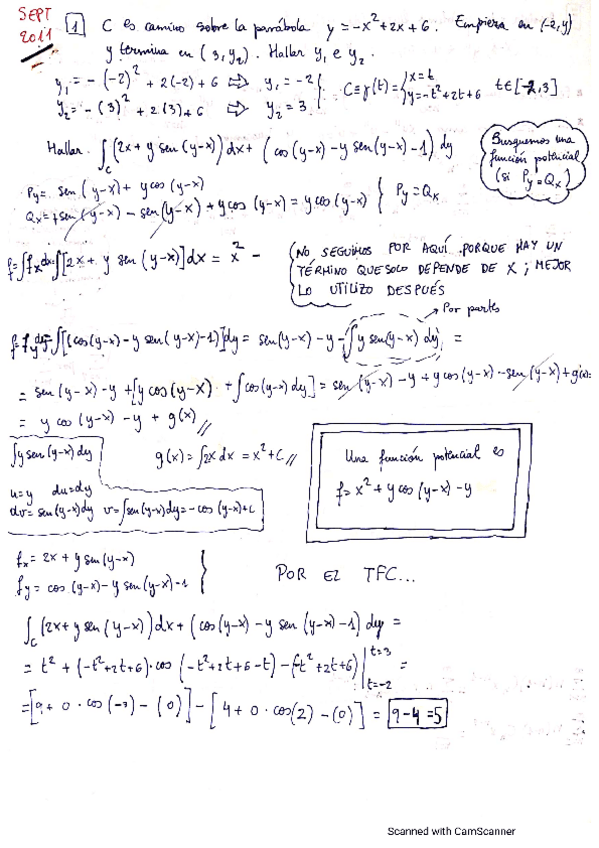 SEPT 2011
1 C es camino sobre la parábola y=-x²+2x+6. Empieza en (-2,y)
y termina en (3,y₂). Hallar y₁ e y₂.
y₁=-(-2)²+2(-2)+6 ⇨ y₁=-2
y₂=-(3)²+2(3)+6 ⇨ y₂=3
C≡γ(t)={x=t
y=-t²+2t+6 t∈[-2,3]
Hallar ∫_C (2x+y sen(y-x))dx+(cos(y-x)-y sen(y-x)-1)dy
Busquemos una
función potencial
(si Py=Qx)
Py=sen(y-x)+ycos(y-x)
Qx=+sen(y-x)-sen(y-x)+ycos(y-x)=ycos(y-x)} Py=Qx
f=∫fx dx=∫[2x+y sen(y-x)]dx=x²-
(NO SEGUIMOS POR AQUÍ PORQUE HAY UN
TÉRMINO QUE SOLO DEPENDE DE X; MEJOR
LO UTILIZO DESPUÉS
Por partes
f=∫fy dy=∫[(cos(y-x)-y sen(y-x)-1)]dy=sen(y-x)-y-∫y sen(y-x)dy=
=sen(y-x)-y+[ycos(y-x)+∫cos(y-x)dy]=sen(y-x)-y+ycos(y-x)-sen(y-x)+g(x)=
=y cos(y-x)-y+g(x)//
∫y sen(y-x)dy
g(x)=∫2xdx=x²+C//
u=y du=dy
dv=sen(y-x)dy v=∫sen(y-x)dy=-cos(y-x)+C
Una función potencial es
f=x²+ycos(y-x)-y
fx=2x+y sen(y-x)
fy=cos(y-x)-y sen(y-x)-1
POR EL TFC...
∫_C (2x+y sen(y-x))dx+(cos(y-x)-y sen(y-x)-1)dy=
=t²+(-t²+2t+6)·cos(-t²+2t+6-t)-(-t²+2t+6)|t=3 t=-2=
=[9+0·cos(-3)-(0)]-[4+0·cos(2)-(0)]=9-4=5
Scanned with CamScanner